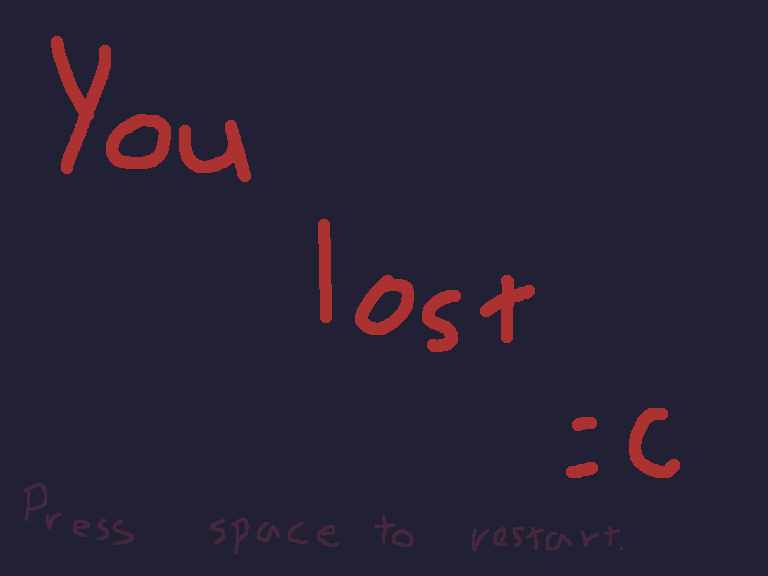 You
lost
=C
Press space to restart.